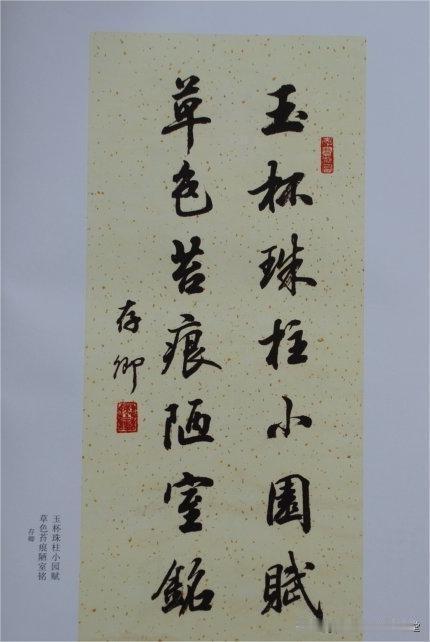 玉杯珠柱小園賦
草色苔痕陋室銘
存卿
玉杯珠柱小园赋
草色苔痕陋室铭
存卿